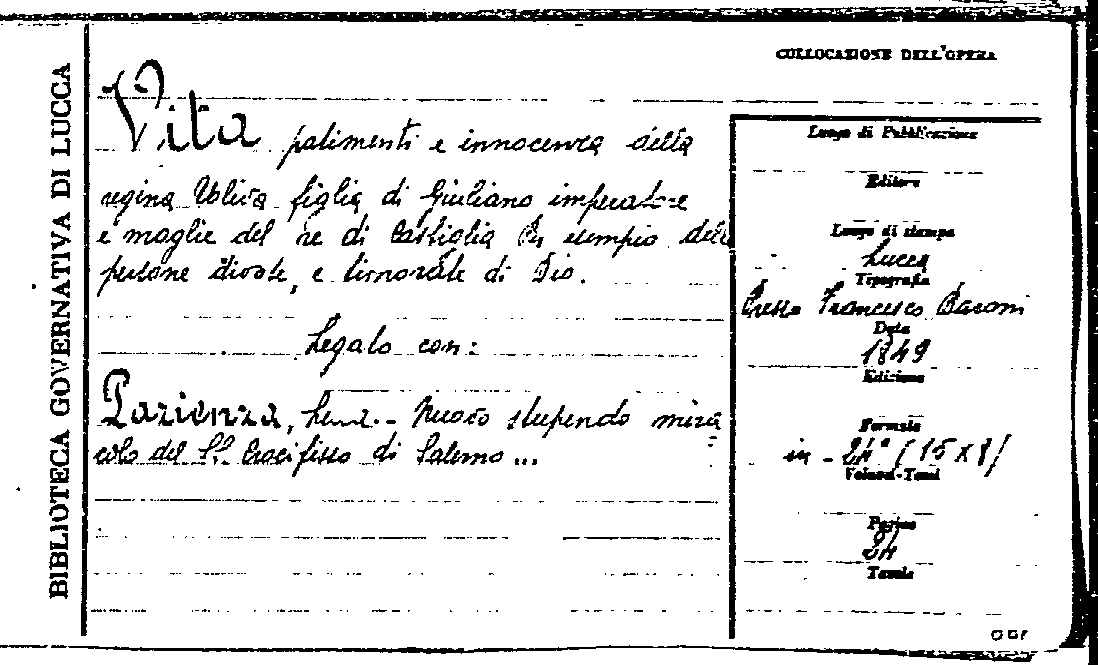 BIBLIOTECA GOVERNATIVA DI LUCCA
COLLOCAZIONE DELL'OPERA
Vita patimenti e innocenza della
regina Uliva figlia di Giuliano imperatore
e moglie del re di Castiglia Per esempio delle
persone divote, e timorate di Dio.
Legato con:
Pazienza, Nuovo stupendo mira
colo del SS. Crocifisso di Salerno...
Luogo di Pubblicazione
Editore
Luogo di stampa
Lucca
Tipografia
Presso Francesco Baroni
Data
1849
Edizione
Formato
in-24° (15 x 8)
Volumi-Tomi
Pagine
24
Tavole